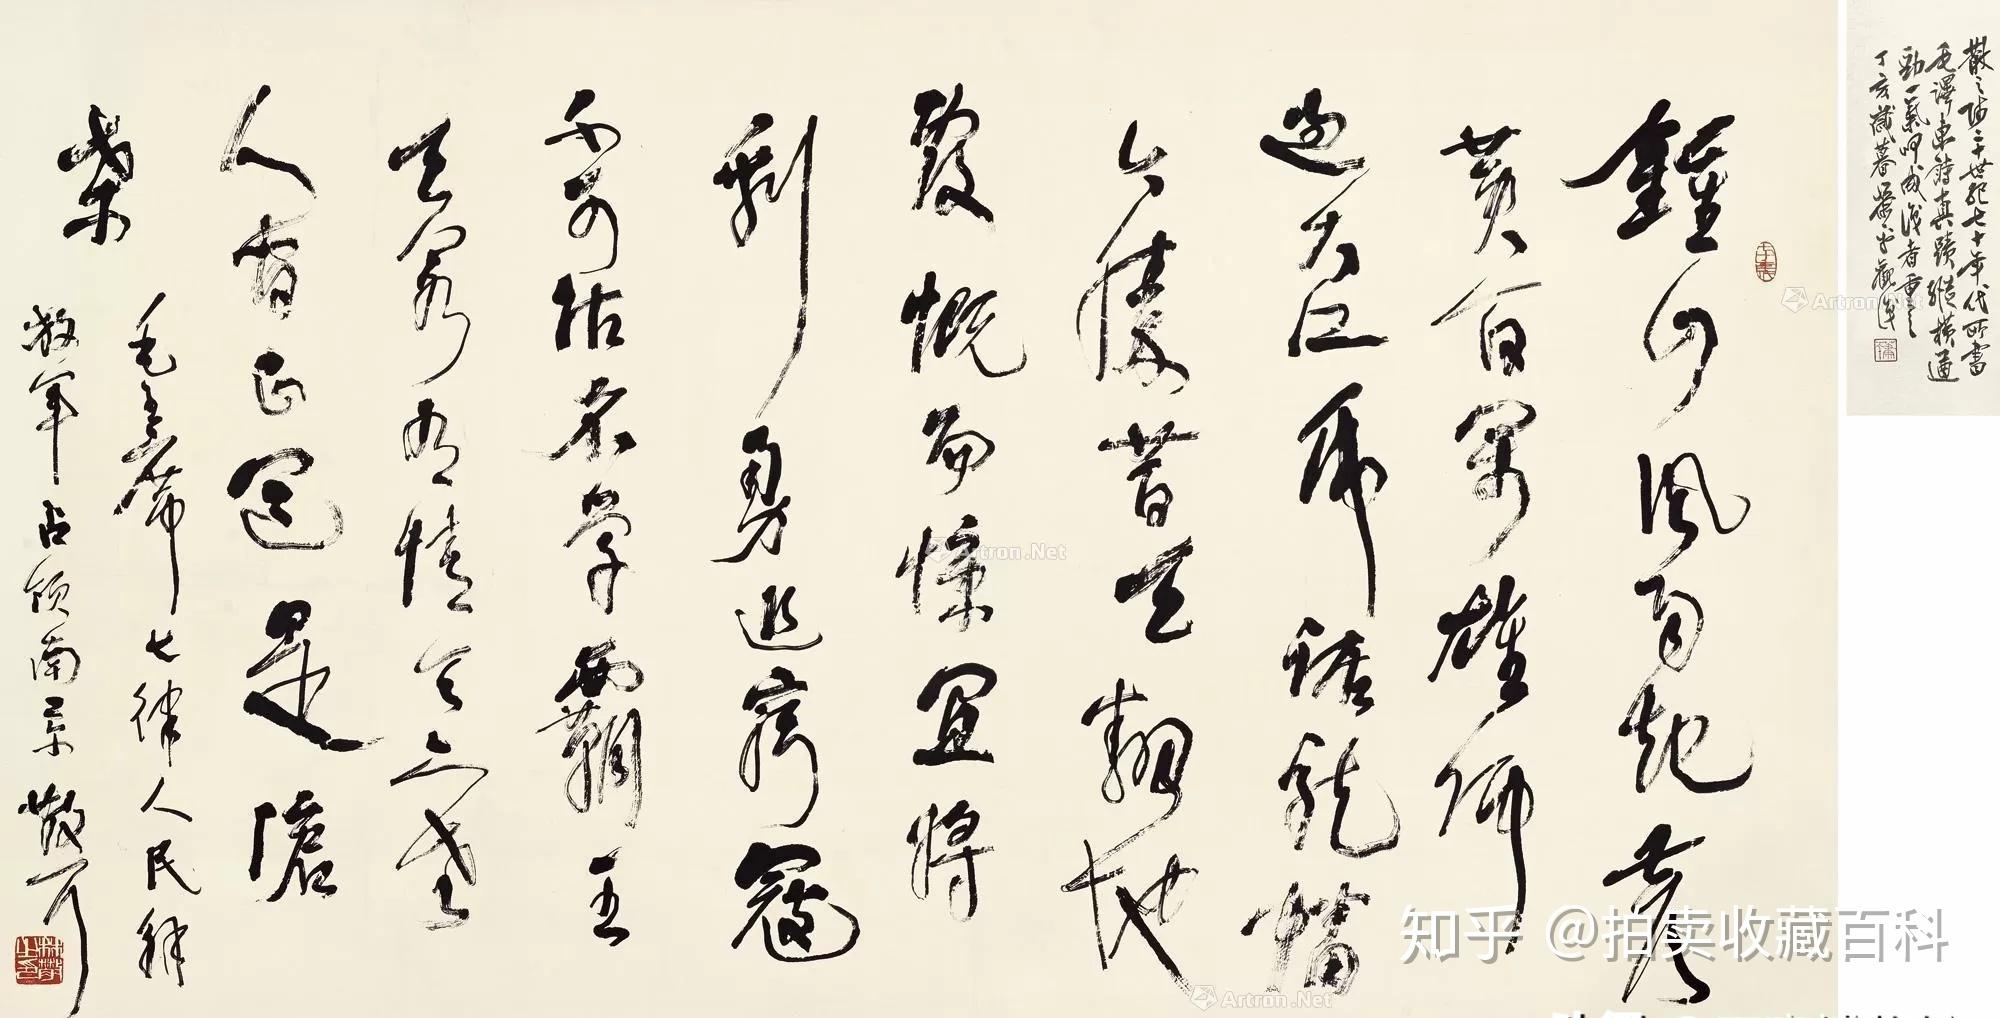 散之師二十世紀七十年代所書
毛澤東詩真蹟縱橫通
勁一氣呵成識者重之
丁亥歲暮
鍾山風雨起蒼
黃百萬雄師
過大江虎踞龍蟠
今勝昔天翻地
覆慨而慷宜將
剩勇追窮寇
不可沽名學霸王
天若有情天亦老
人間正道是滄
桑
毛主席七律人民解
放軍占領南京 散耳
林散之印
Artron.Net
Artron.Net
Artron.Net
知乎 @拍卖收藏百科